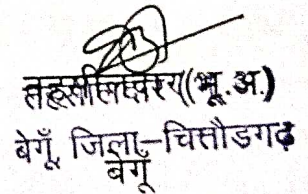 तहसीलदार (भू.अ.)
बेगूँ, जिला-चित्तौडगढ़
बेगूँ